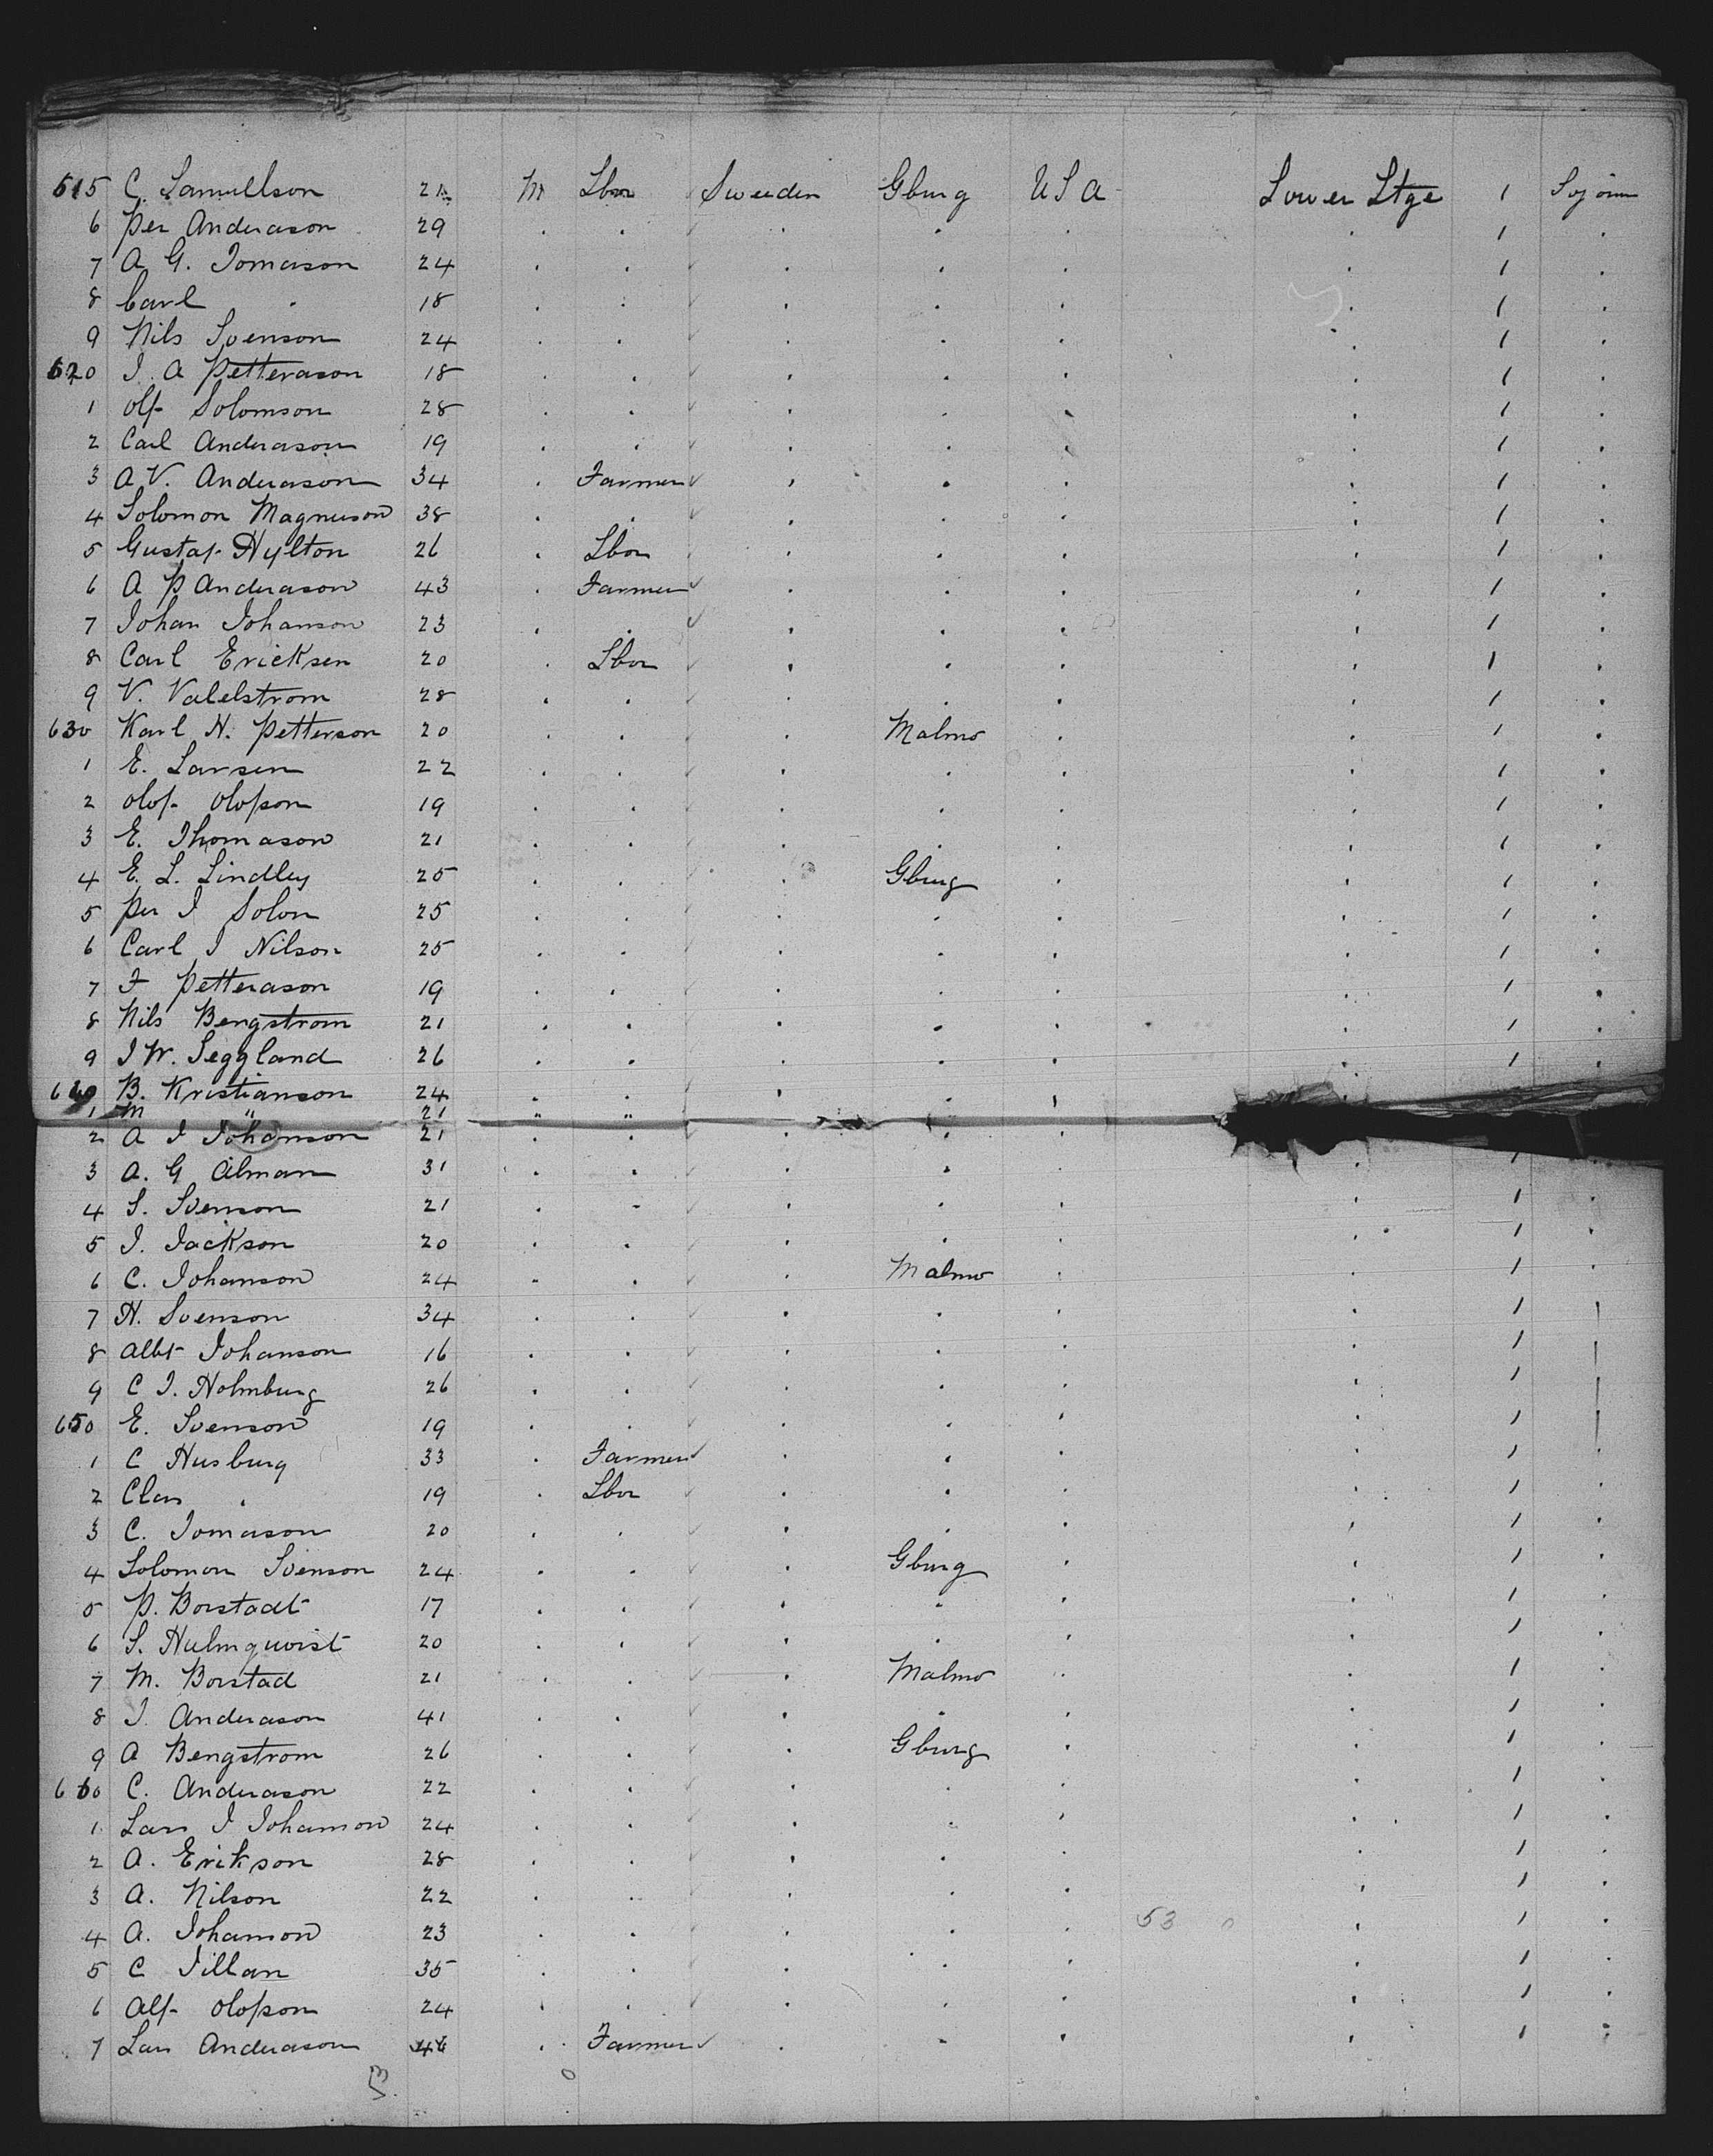 615 C. Samuellson 21 M Lbor Sweeden Gburg U S A Lower Stge 1 Sojourn
6 Per Anderason 29 . . . . . . 1 .
7 A G. Jomason 24 . . . . . . 1 .
8 Carl . 18 . . . . . . 1 .
9 Nils Svenson 24 . . . . . . 1 .
620 J. A Petterason 18 . . . . . . 1 .
1 Olf Solomson 28 . . . . . . 1 .
2 Carl Anderason 19 . . . . . . 1 .
3 A V. Anderason 34 . Farmer . . . . 1 .
4 Solomon Magnuson 38 . . . . . . 1 .
5 Gustaf Hylton 26 . Lbor . . . . 1 .
6 A P Anderason 43 . Farmer . . . . 1 .
7 Johan Johanson 23 . . . . . . 1 .
8 Carl Ericksen 20 . Lbor . . . . 1 .
9 V. Valelstrom 28 . . . . . . 1 .
630 Karl H. Petterson 20 . . . Malmo . . 1 .
1 E. Larsen 22 . . . . . . 1 .
2 Olof Olofson 19 . . . . . . 1 .
3 E. Thomason 21 . . . . . . 1 .
4 E. L. Lindley 25 . . . Gburg . . 1 .
5 Per J Solon 25 . . . . . . 1 .
6 Carl J Nilson 25 . . . . . . 1 .
7 F Petterason 19 . . . . . . 1 .
8 Nils Bengstrom 21 . . . . . . 1 .
9 J W. Seggland 26 . . . . . . 1 .
640 B. Kristianson 24 . . . . . .
1 M " 21 " "
2 A J Johanson 21 . . . . .
3 A. G Alman 31 . . . . . 1 .
4 S. Svenson 21 . . . . . . 1 .
5 J. Jackson 20 . . . . . . 1 .
6 C. Johanson 24 . . . Malmo . . 1 .
7 H. Svenson 34 . . . . . . 1
8 Albt Johanson 16 . . . . . . 1
9 C J. Holmburg 26 . . . . . . 1
650 E. Svenson 19 . . . . . . 1
1 C Husburg 33 . Farmer . . . . 1 .
2 Clas . 19 . Lbor . . . . 1 .
3 C. Jomason 20 . . . . . . 1 .
4 Solomon Svenson 24 . . . Gburg . . 1 .
5 P. Borstadt 17 . . . . . . 1 .
6 S. Hulmquvist 20 . . . . . . 1 .
7 M. Borstad 21 . . . Malmo . . 1 .
8 J. Anderason 41 . . . . . . 1 .
9 A Bengstrom 26 . . . Gburg . . 1 .
660 C. Anderason 22 . . . . . . 1 .
1 Lars J Johanson 24 . . . . . . 1 .
2 A. Erikson 28 . . . . . . 1 .
3 A. Nilson 22 . . . . . . 1 .
4 A. Johanson 23 . . . . . 53 0 . 1 .
5 C Jillan 35 . . . . . . 1 .
6 Alf Olofson 24 . . . . . . 1 .
7 Lars Anderason . Farmer . . . . 1 .